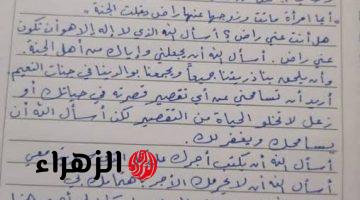 "أيما امرأة ماتت وزوجها عنها راض دخلت الجنة"
هل أنت عني راض؟ أسأل الله الذي لا إله إلا هو أن تكون
عني راض. أسأل الله أن يجعلني وإياك من أهل الجنة.
وأن يجمعنا بذريتنا جميعاً ويجمعنا بوالدينا في جنات النعيم
أريد أن تسامحني عن أي تقصير قصرته في حياتك أو
زعل لا تخلو الحياة من التقصير لكن أسأل الله أن
يسامحك ويغفر لك.
أسأل الله أن يكتب أجرك على
أسأل الله أن لا يحرمك الأجر
الزهراء